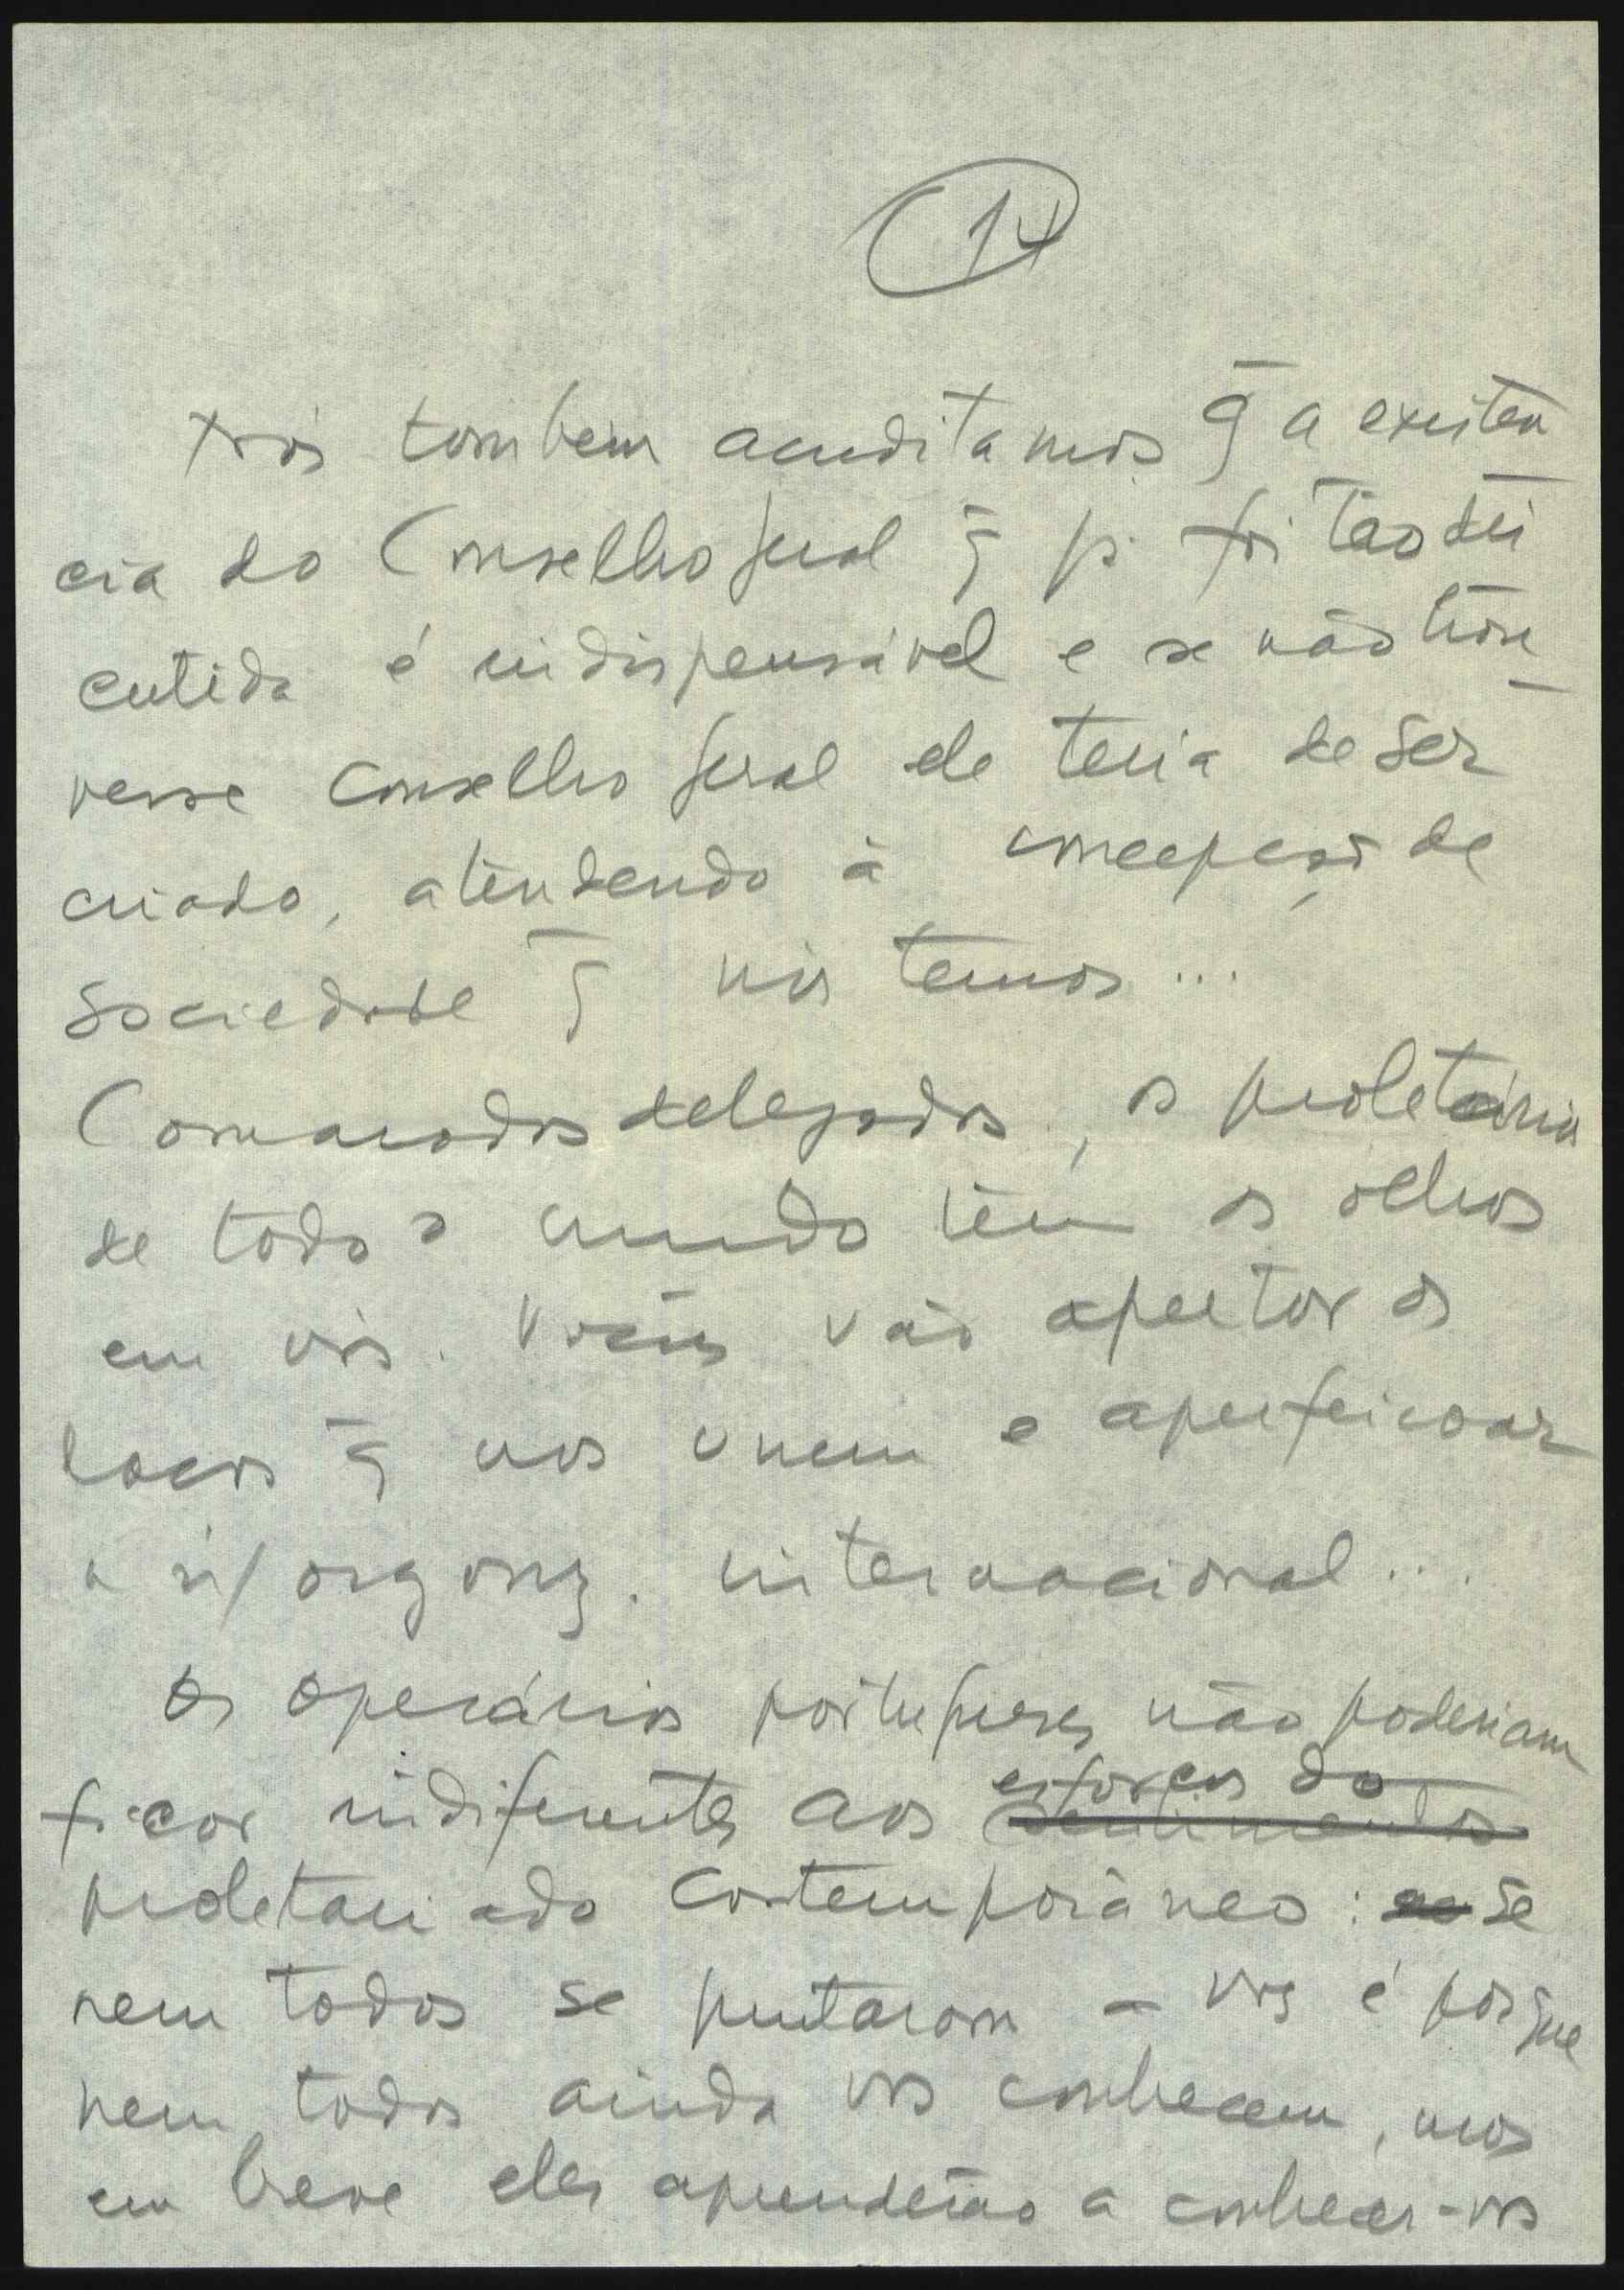 14
Nós tambem acreditamos q̄ a existen
cia do Conselho geral q̄ já foi tão dis
cutida é indispensável e se não hou
vesse Conselho geral ele teria de ser
criado, atendendo à concepção de
sociedade q̄ nós temos...
Camaradas delegados, os proletários
de todo o mundo têm os olhos
em vós. Vocês vão apertar os
laços q̄ nos unem e aperfeiçoar
a n/ organiz. internacional...
Os operários portugueses não poderiam
ficar indiferentes aos esforços do
proletariado contemporâneo: se
nem todos se juntaram a vós é porque
nem todos ainda vos conhecem, mas
em breve eles aprenderão a conhecer-vos